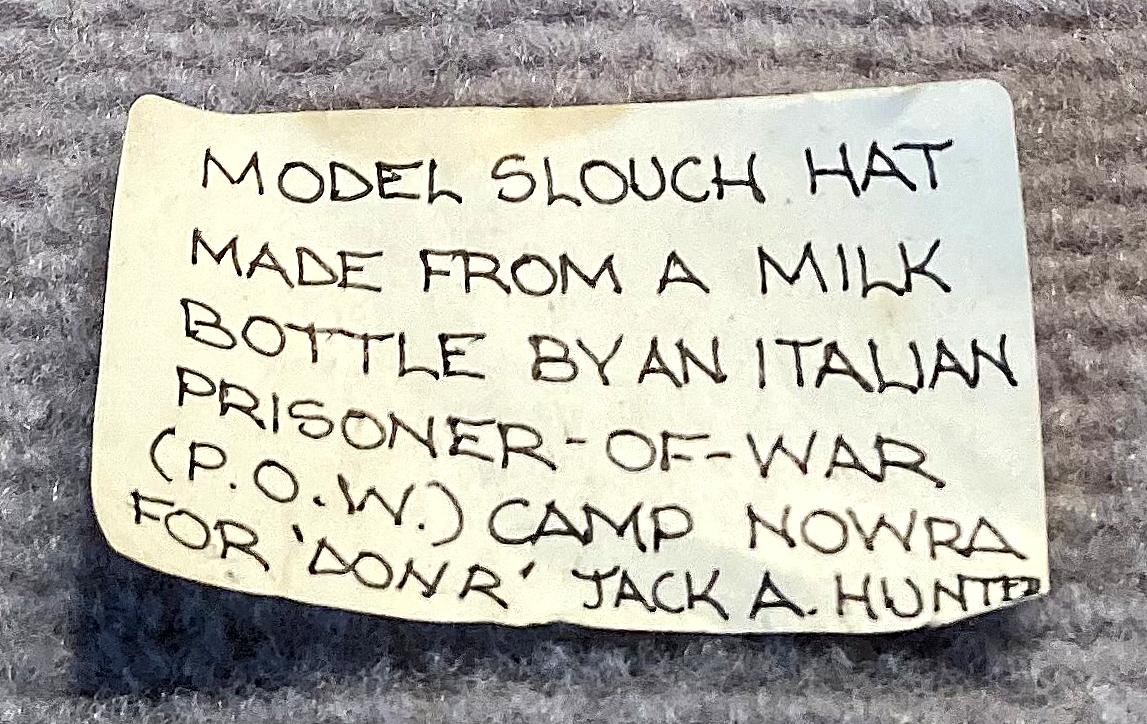 MODEL SLOUCH HAT
MADE FROM A MILK
BOTTLE BY AN ITALIAN
PRISONER-OF-WAR
(P.O.W.) CAMP NOWRA
FOR 'DONR' JACK A. HUNTER